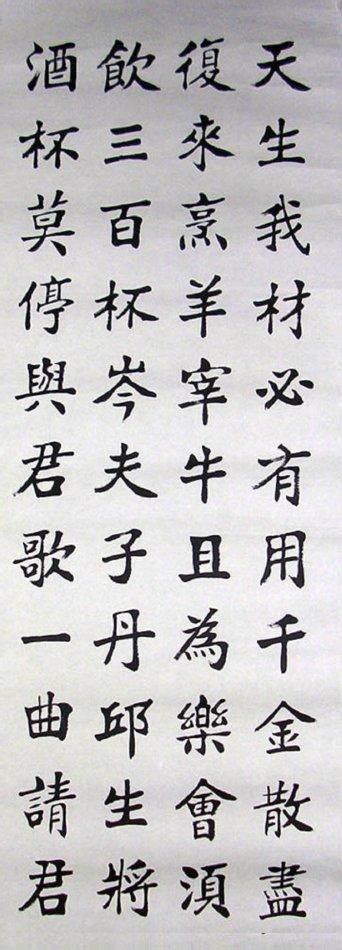 天生我材必有用千金散盡
復來烹羊宰牛且為樂會須
飲三百杯岑夫子丹邱生將
酒杯莫停與君歌一曲請君